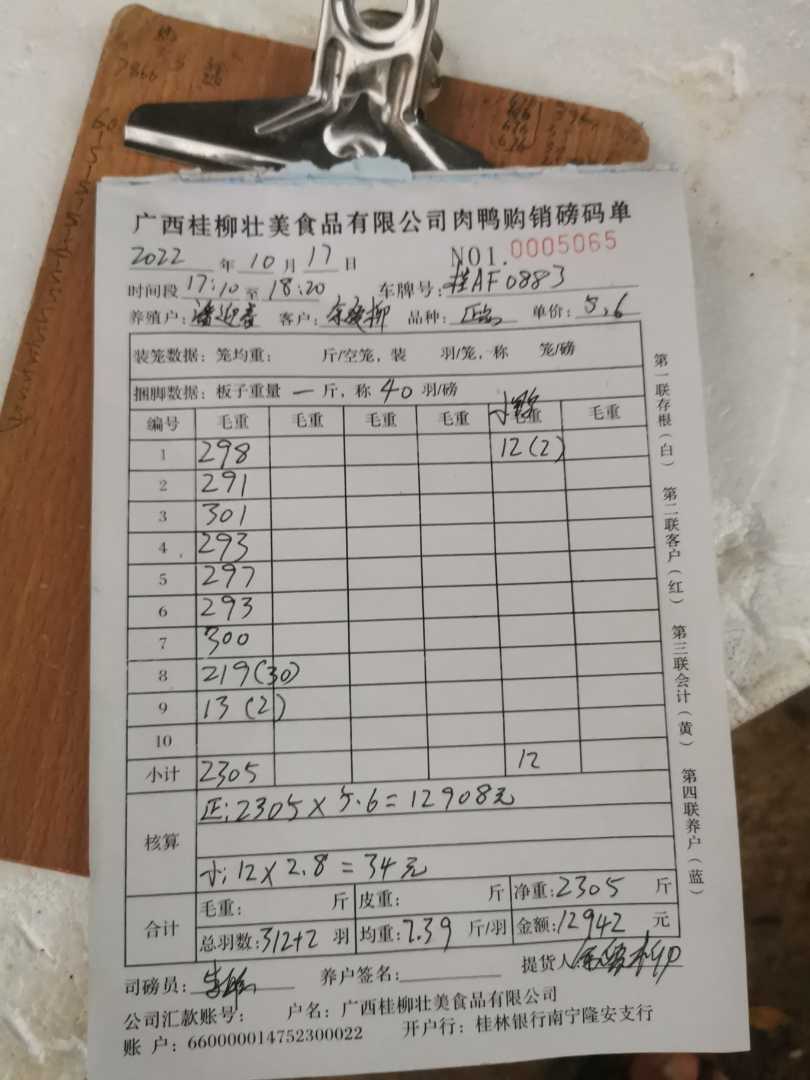 广西桂柳壮美食品有限公司肉鸭购销磅码单
2022 年 10 月 17 日 NO1. 0005065
时间段 17:10 至 18:20 车牌号: 桂AF0883
养殖户: 潘迎春 客户: 品种: 正 单价: 5.6
装笼数据: 笼均重: 斤/空笼, 装 羽/笼, 称 笼/磅
捆脚数据: 板子重量 一 斤, 称 40 羽/磅
编号 毛重 毛重 毛重 毛重 毛重 毛重
1 298 12(2)
2 291
3 301
4 293
5 297
6 293
7 300
8 219(30)
9 13(2)
10
小计 2305 12
正: 2305×5.6=12908元
核算
小: 12×2.8=34元
合计 毛重: 斤 皮重: 斤 净重: 2305 斤
总羽数: 312+2 羽 均重: 7.39 斤/羽 金额: 12942 元
司磅员: 养户签名: 提货人
公司汇款账号: 户名: 广西桂柳壮美食品有限公司
账 户: 660000014752300022 开户行: 桂林银行南宁隆安支行
第一联存根(白) 第二联客户(红) 第三联会计(黄) 第四联养户(蓝)